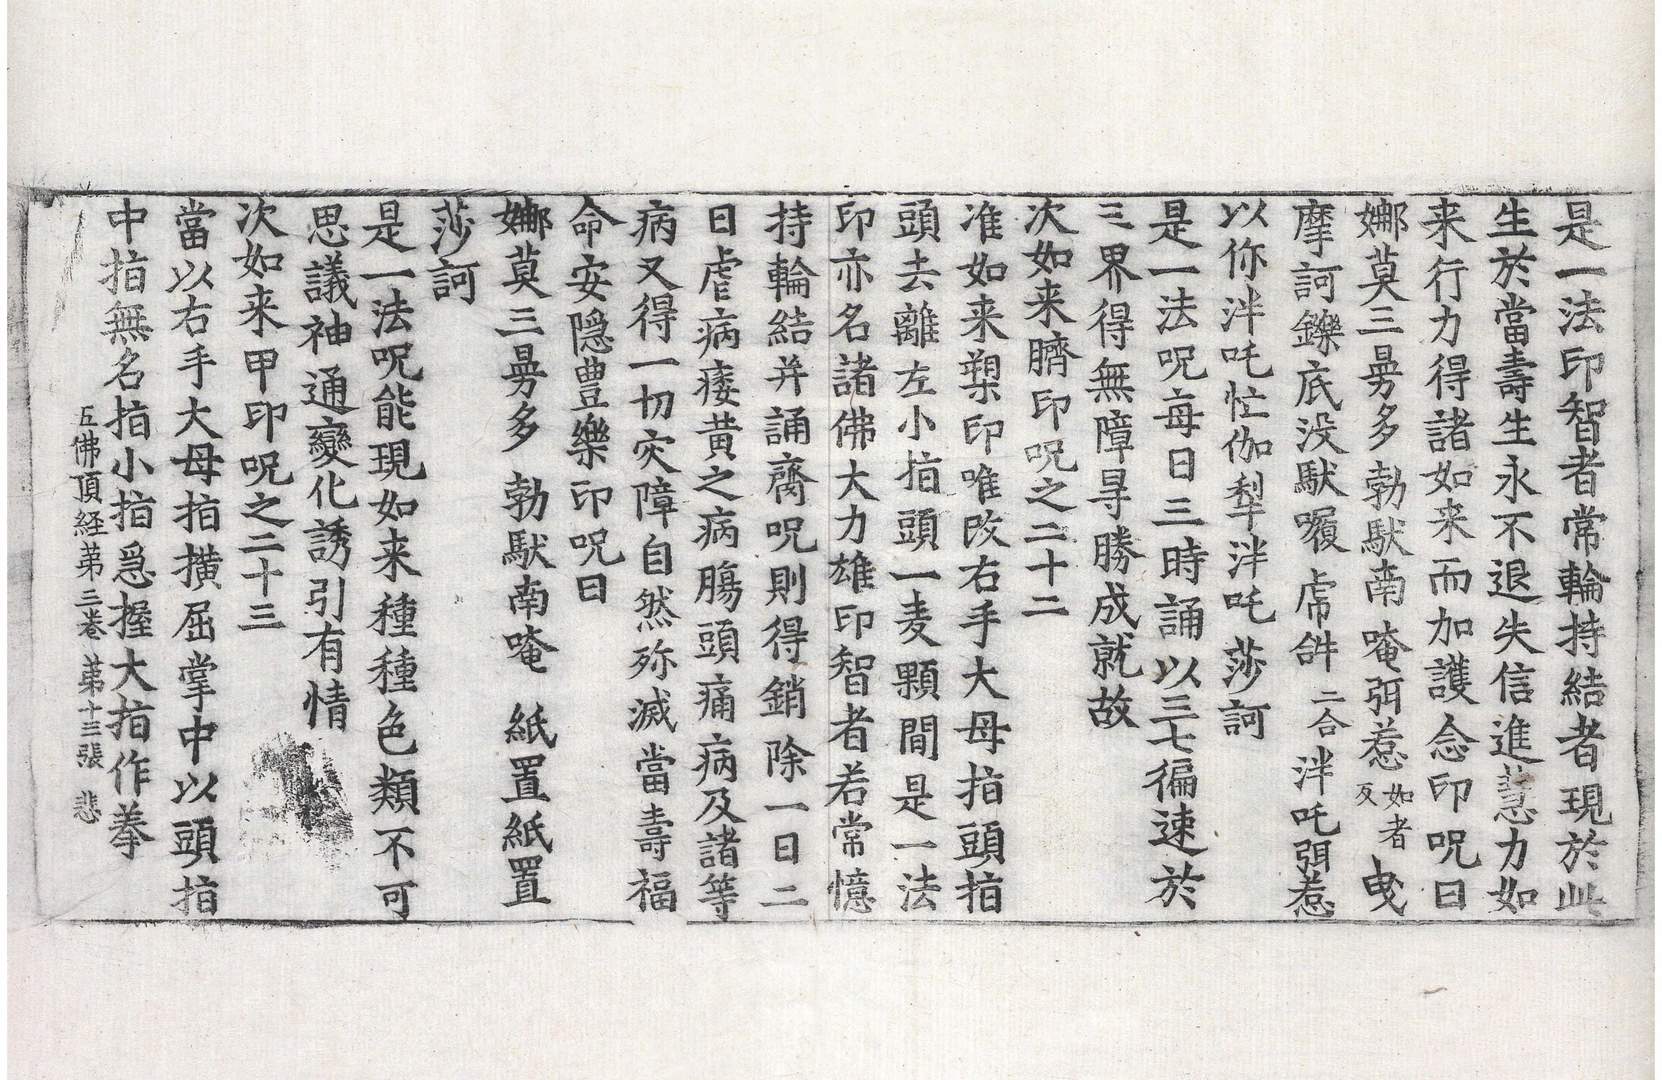 是一法印智者常輪持結者現於此
生於當壽生永不退失信進慧力如
来行力得諸如来而加護念印呪曰
娜莫三曼多勃馱南唵弭惹如者反曳
摩訶鑠底没馱囇虎𤙖二合泮吒弭惹
以你泮吒忙伽犁泮吒莎訶
是一法呪每日三時誦以三七徧速於
三界得無障㝵勝成就故
次如来臍印呪之二十二
准如来槊印唯改右手大母指頭指
頭去離左小指頭一麦顆間是一法
印亦名諸佛大力雄印智者若常憶
持輪結并誦𦜝呪則得銷除一日二
日虐病痿黄之病膓頭痛病及諸等
病又得一切灾障自然殄滅當壽福
命安隱豊樂印呪曰
娜莫三曼多勃馱南唵 紙置紙置
莎訶
是一法呪能現如来種種色類不可
思議神通變化誘引有情
次如来甲印呪之二十三
當以右手大母指撗屈掌中以頭指
中指無名指小指爲握大指作拳
五佛頂経苐三卷 苐十三張 悲